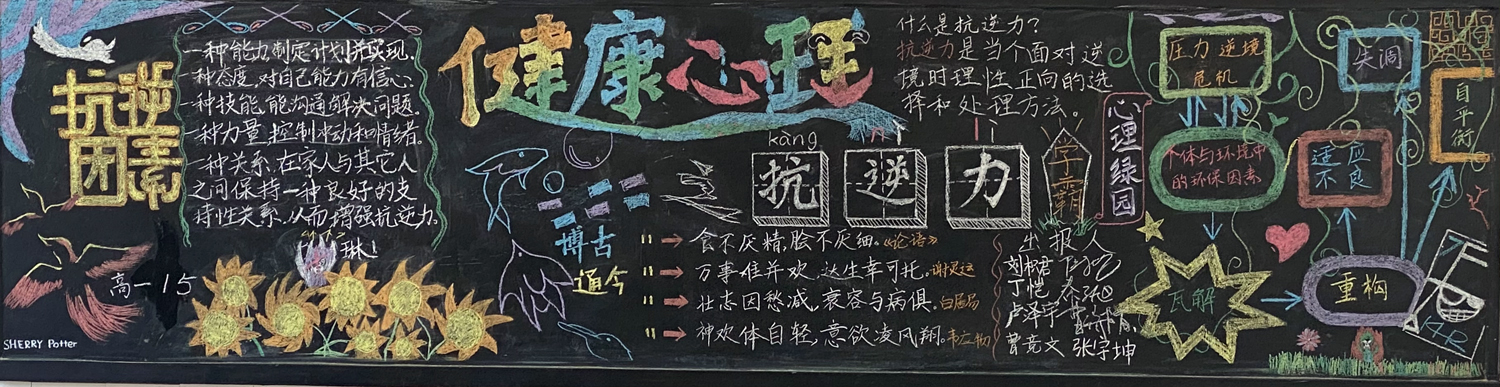 抗逆
因素
一种能力,制定计划并实现.
一种态度,对自己能力有信心.
一种技能,能沟通解决问题.
一种力量,控制冲动和情绪。
一种关系,在家人与其它人
之间保持一种良好的支
持性关系.从而增强抗逆力.
琳!
高一15
SHERRY Potter
健康心理
什么是抗逆力?
抗逆力是当个面对逆
境时理性正向的选
择和处理方法。
kàng
抗 逆 力
学霸
心理绿园
博古
通今
食不厌精,脍不厌细。《论语》
万事难并欢,达生幸可托.谢灵运
壮志因愁减,衰容与病俱.白居易
神欢体自轻,意欲凌风翔.韦应物
出报人
丁恺
卢泽宇
曾竞文 张字坤
压力 逆境
危机
个体与环境中
的环保因素
瓦解
失调
适应
不良
重构
自平衡